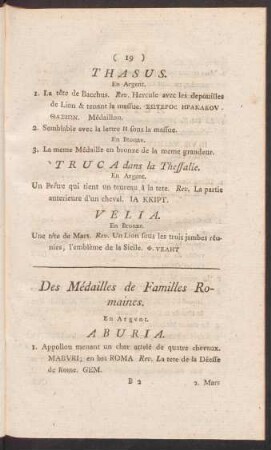 ( 19 )
THASUS.
En Argent.
1. La tête de Bacchus. Rev. Hercule avec les depouilles
de Lion & tenant la massue. ΣΩΤΗΡΟΣ ΗΡΑΚΛΕΟΥ·
ΘΑΣΙΩΝ. Médaillon.
2. Semblable avec la lettre H sous la massue.
En Bronze.
3. La meme Médaille en bronze de la meme grandeur.
TRUCA dans la Thessalie.
En Argent.
Un Prêtre qui tient un taureau à la tete. Rev. La partie
anterieure d'un cheval. ΙΑ ΚΚΙΡΤ.
VELIA.
En Bronze.
Une tête de Mars. Rev. Un Lion sous les trois jambes réu-
nies, l'emblême de la Sicile. Φ. ΥΕΛΗΤ
Des Médailles de Familles Ro-
maines.
En Argent.
ABURIA.
1. Appollon menant un char attelé de quatre chevaux.
MABVRI; en bas ROMA Rev. La tete de la Déesse
de Rome. GEM.
B 2
2. Mars